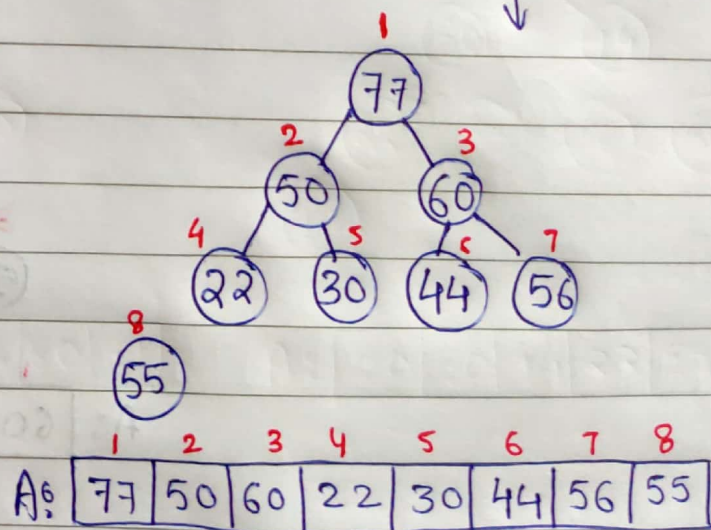 1
77
2 3
50 60
4 5 6 7
22 30 44 56
8
55
1 2 3 4 5 6 7 8
A: 77 50 60 22 30 44 56 55